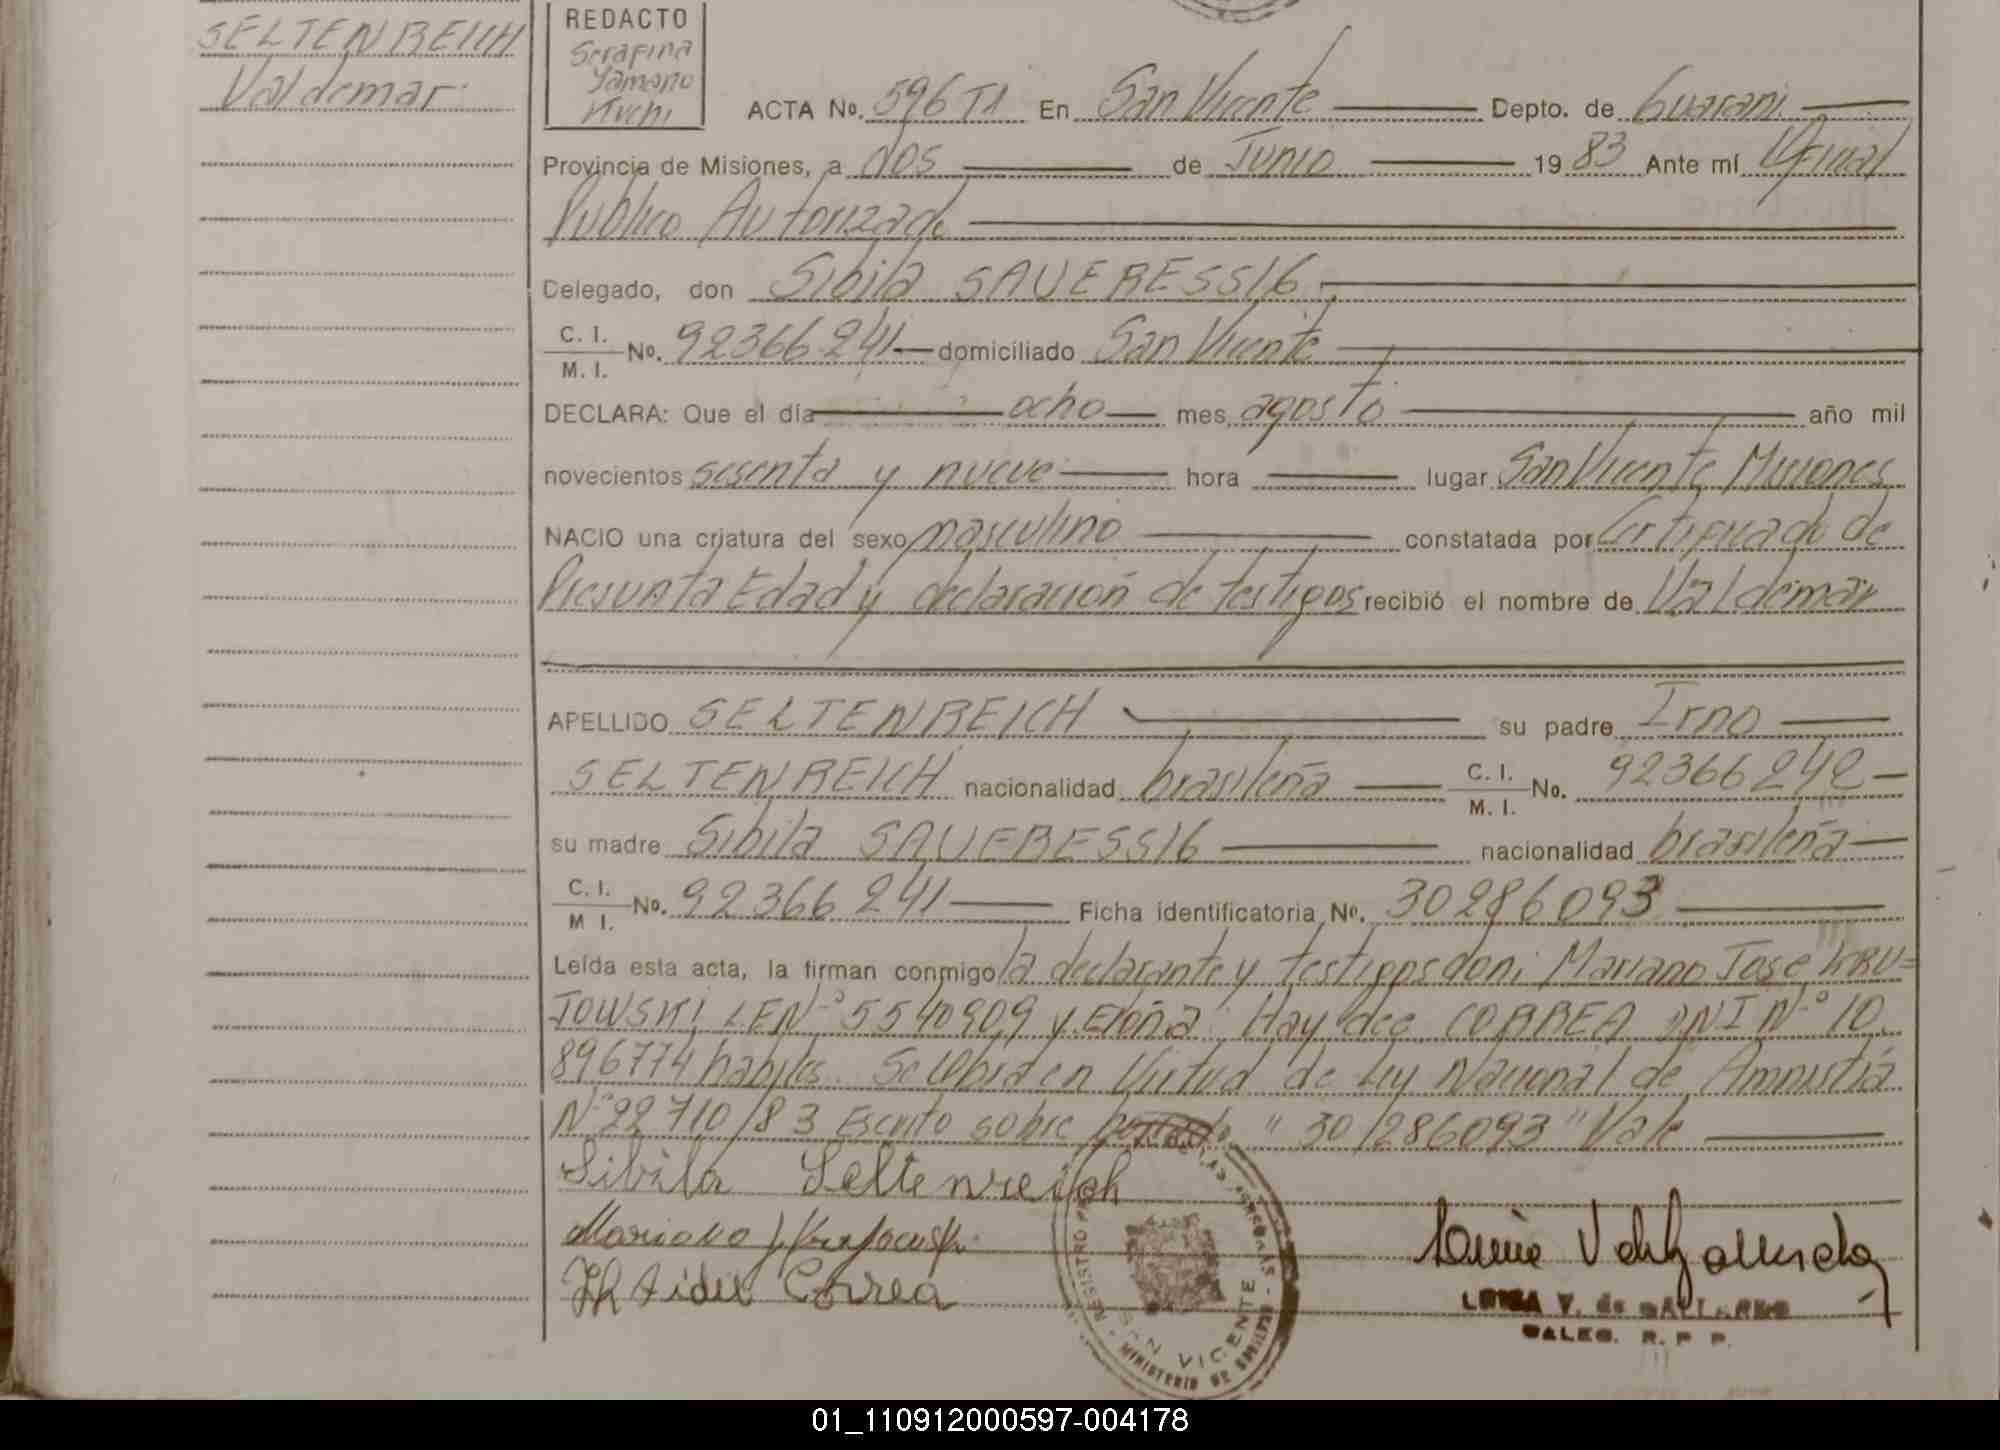 SELTENREICH
Valdemar
REDACTO
Serafina
Yamano
Kuchi
ACTA No. 596 T1 En San Vicente Depto. de Guarani
Provincia de Misiones, a dos de Junio 1983 Ante mí Oficial
Publico Autorizado
Delegado, don Sibila SAUERESSIG
C. I.
M. I. No. 92366241 domiciliado San Vicente
DECLARA: Que el día ocho mes agosto año mil
novecientos sesenta y nueve hora lugar San Vicente Misiones
NACIO una criatura del sexo masculino constatada por Certificado de
Presunta Edad y declaración de testigos recibió el nombre de Valdemar
APELLIDO SELTENREICH su padre Irno
SELTENREICH nacionalidad brasileña C. I.
M. I. No. 92366242
su madre Sibila SAUERESSIG nacionalidad brasileña
C. I.
M I. No. 92366241 Ficha identificatoria No. 30286093
Leída esta acta, la firman conmigo la declarante y testigos don: Mariano José KRU=
JOWSKI LE Nº 5540909 y Haydee CORREA DNI Nº 10.
896774 habiles. Se labra en Virtud de Ley Nacional de Amnistiá
Nº 22710/83 Escrito sobre "30/286093" Vale
Sibila Seltenreich
Mariano J.
Correa
REGISTRO
SAN VICENTE
MINISTERIO DE GOBIERNO
LUISA V. de GALLARDO
R. P. P.
01_110912000597-004178